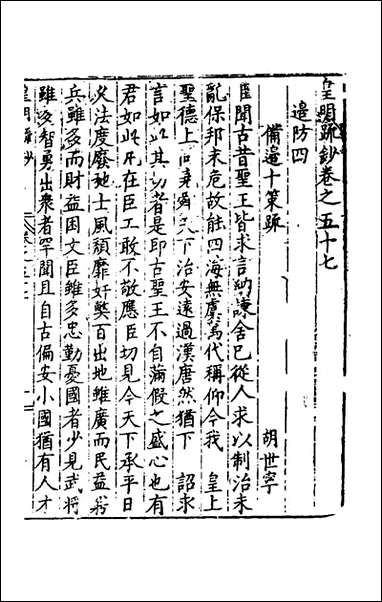 皇明疏鈔卷之五十七
邊防四
備邊十策疏
胡世寧
臣聞古昔聖王皆求言納諫舍己從人求以制治未
亂保邦未危故能四海無虞萬代稱仰今我 皇上
聖德上同堯舜天下治安遠過漢唐然猶下 詔求
言如此其切者是即古聖王不自滿假之盛心也有
君如此凡在臣工敢不敬應臣切見今天下承平日
久法度廢弛士風頹靡奸弊百出地雖廣而民益窮
兵雖多而財益困文臣雖多忠勤憂國者少見武將
雖多智勇出衆者罕聞且自古偏安小國猶有人才
皇明疏鈔